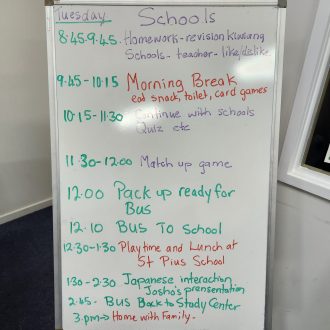 Tuesday Schools
8:45-9.45. Homework - revision
Schools - teacher - like/dislike
9.45-10.15 Morning Break
eat snack, toilet, card games
10.15-11.30 Continue with schools
Quiz etc
11.30-12.00 Match up game
12.00 Pack up ready for
Bus
12.10 BUS To School
12.30-1.30 Playtime and Lunch at
St Pius School
1.30-2.30 Japanese interaction
Josho's prensentation
2.45- BUS Back to Study Center
3.pm→ Home with Family.